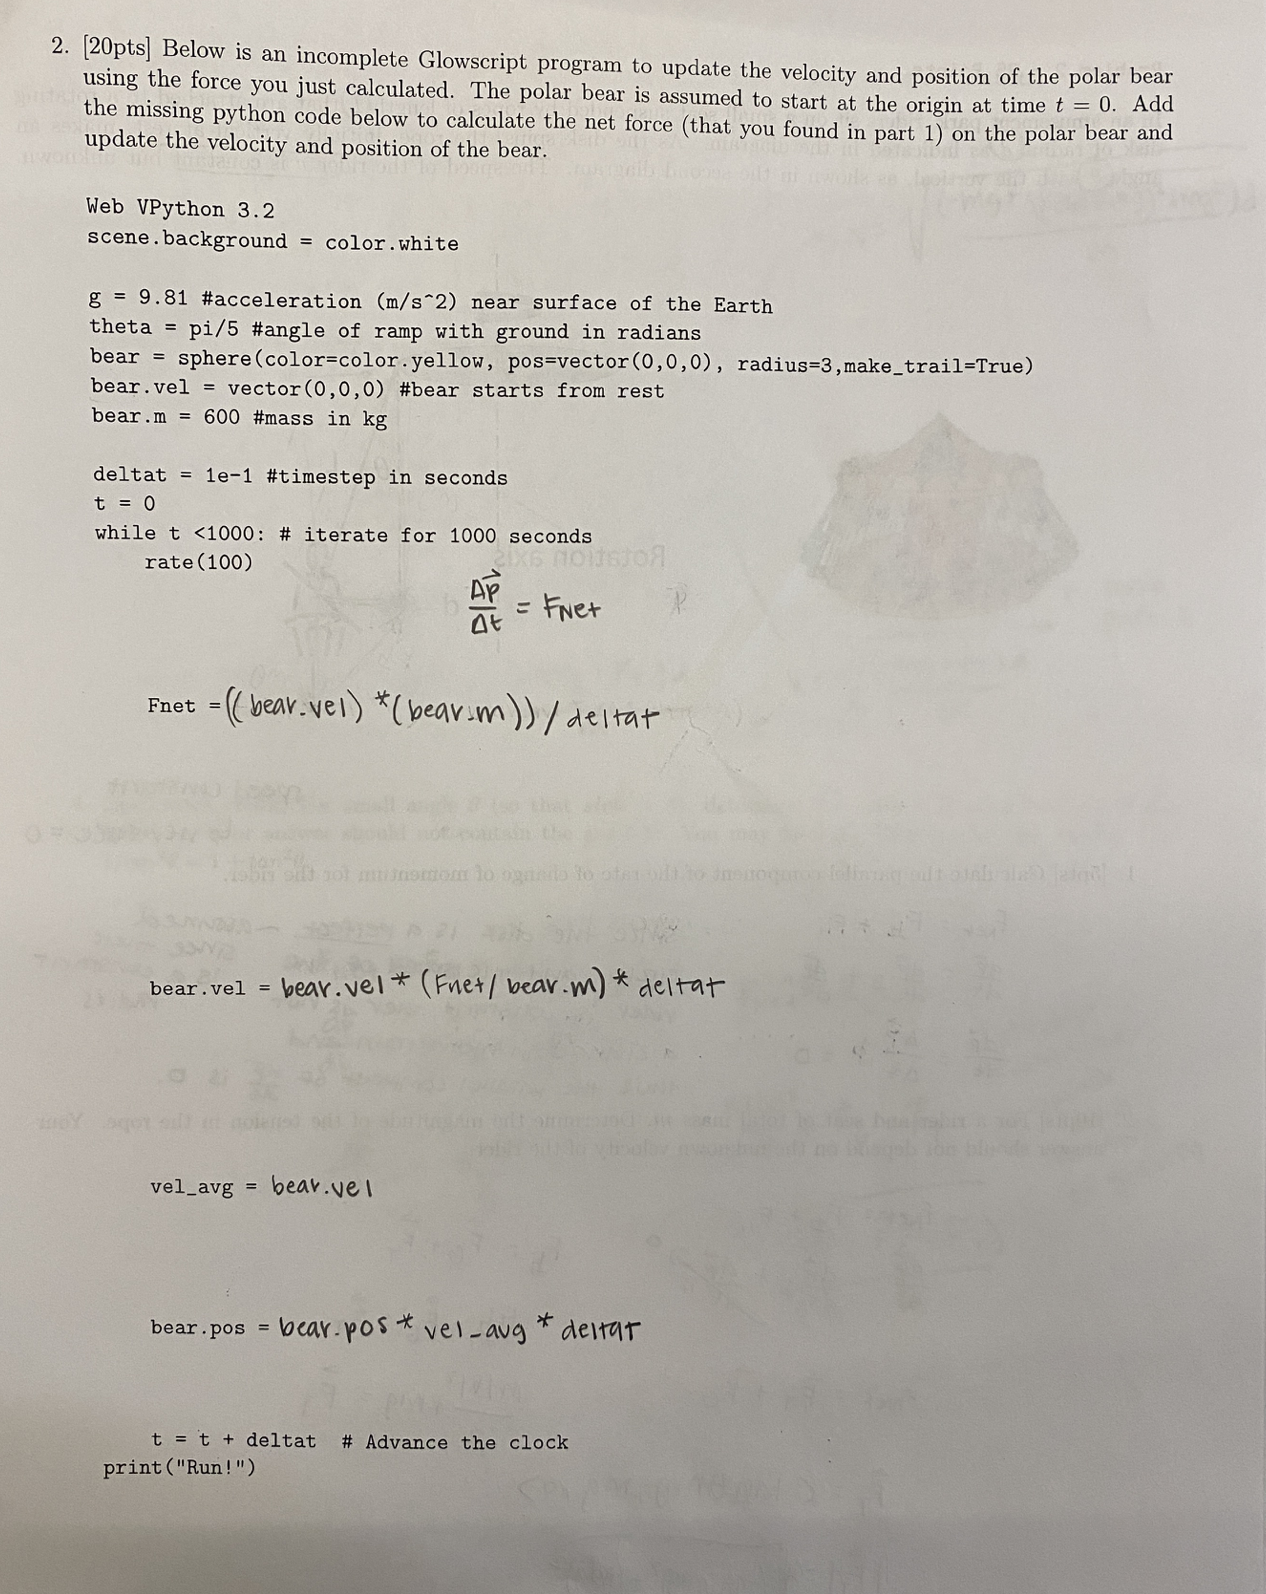 2. [20pts] Below is an incomplete Glowscript program to update the velocity and position of the polar bear
using the force you just calculated. The polar bear is assumed to start at the origin at time t = 0. Add
the missing python code below to calculate the net force (that you found in part 1) on the polar bear and
update the velocity and position of the bear.
Web VPython 3.2
scene.background = color.white
g = 9.81 #acceleration (m/s^2) near surface of the Earth
theta = pi/5 #angle of ramp with ground in radians
bear = sphere(color=color.yellow, pos=vector(0,0,0), radius=3,make_trail=True)
bear.vel = vector(0,0,0) #bear starts from rest
bear.m = 600 #mass in kg
deltat = 1e-1 #timestep in seconds
t = 0
while t <1000: # iterate for 1000 seconds
rate(100)
Δp⃗/Δt = FNet
Fnet = ((bear.vel) *(bear.m)) / deltat
bear.vel = bear.vel * (Fnet/ bear.m) * deltat
vel_avg = bear.vel
bear.pos = bear.pos * vel_avg * deltat
t = t + deltat # Advance the clock
print("Run!")